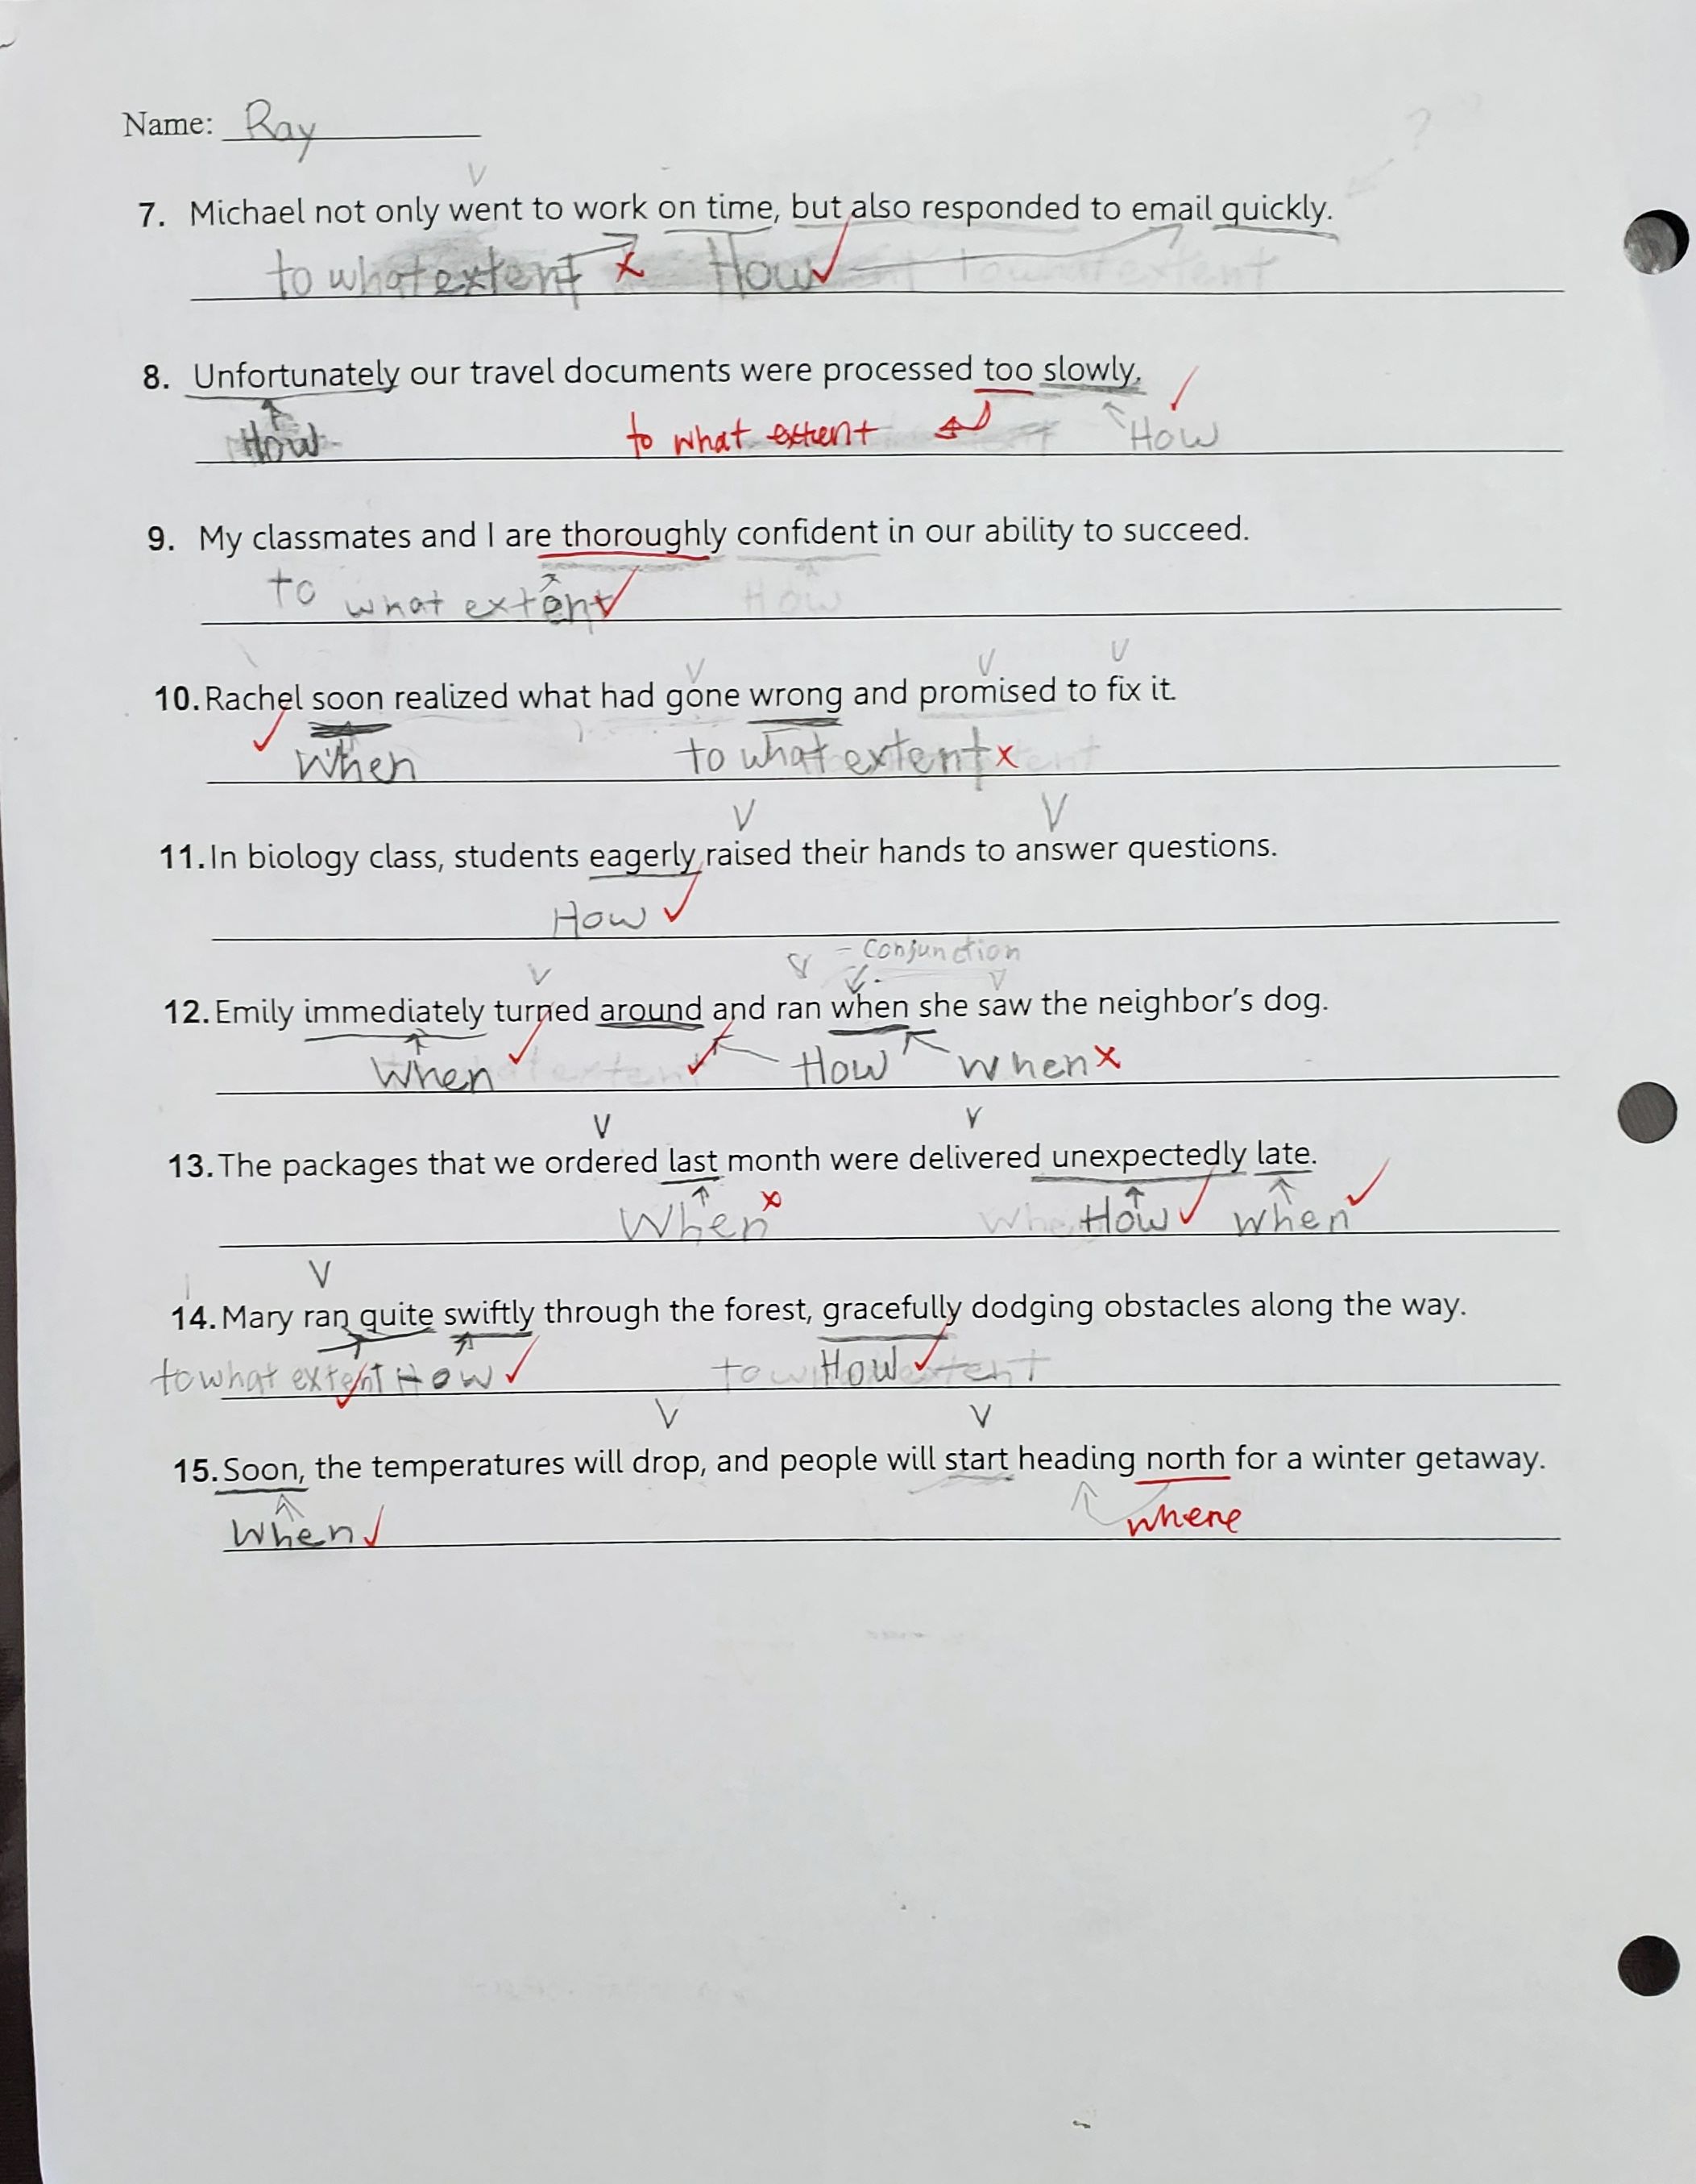 Name: Ray
V
7. Michael not only went to work on time, but also responded to email quickly.
to what extent x How ✓
8. Unfortunately our travel documents were processed too slowly. ✓
How to what extent How
9. My classmates and I are thoroughly confident in our ability to succeed.
to what extent ✓ How
V V V
10. Rachel soon realized what had gone wrong and promised to fix it.
✓ When to what extent x
V V
11. In biology class, students eagerly raised their hands to answer questions.
How ✓
- Conjunction
V V V
12. Emily immediately turned around and ran when she saw the neighbor's dog.
When ✓ ✓ How when x
V V
13. The packages that we ordered last month were delivered unexpectedly late.
When x How ✓ when ✓
V
14. Mary ran quite swiftly through the forest, gracefully dodging obstacles along the way.
to what extent ✓ How ✓ How ✓
V V
15. Soon, the temperatures will drop, and people will start heading north for a winter getaway.
When ✓ where